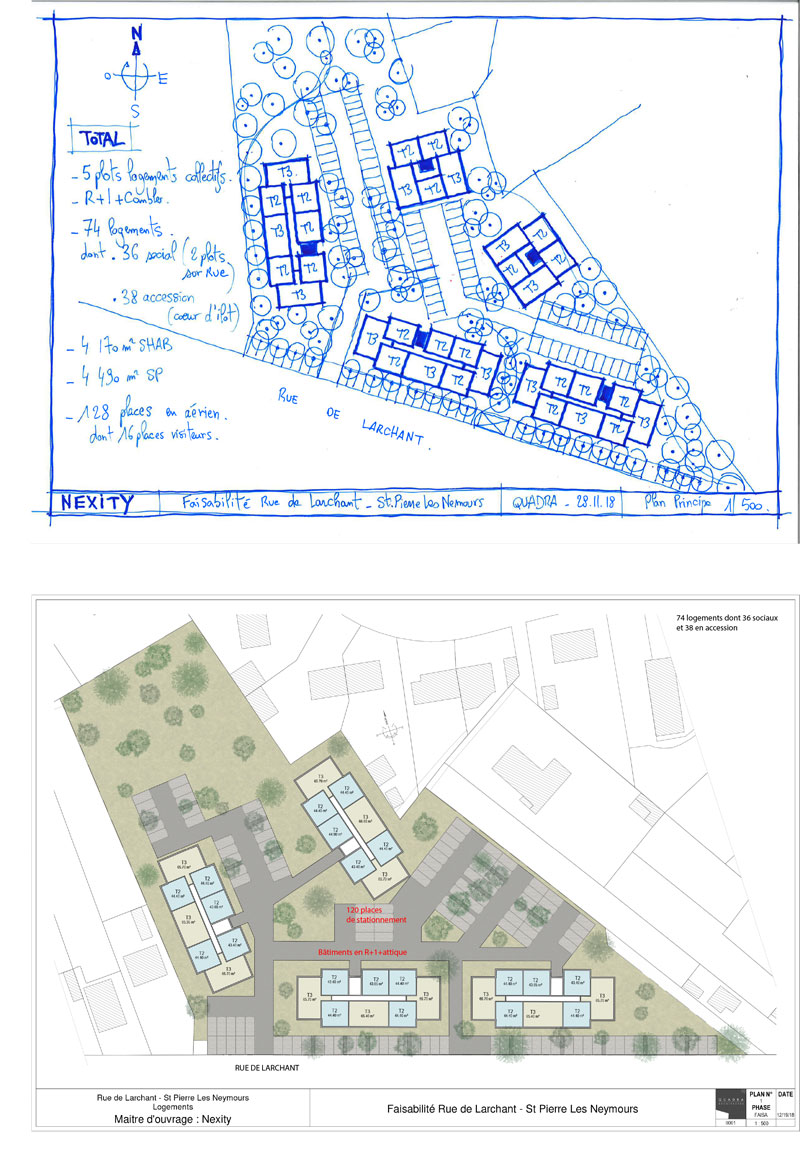 N
O
E
S
TOTAL
- 5 plots logements collectifs.
- R+1+Combles.
- 74 logements.
dont . 36 social (2 plots
sur Rue)
. 38 accession
(coeur d'îlot)
- 4 170 m² SHAB
- 4 490 m² SP
- 128 places en aérien.
dont 16 places visiteurs.
T3
T2 T2
T3 T2
T2 T2
T3
T2 T2
T3 T2 T3
T3 T2
T2 T2
T3
T3 T2 T2 T2 T3
T2 T3 T2
T3 T2 T2 T2 T3
T2 T3 T2
RUE DE LARCHANT.
NEXITY
Faisabilité Rue de Larchant - St.Pierre les Nemours
QUADRA - 28.11.18
Plan Principe 1/500.
74 logements dont 36 sociaux
et 38 en accession
T3
T2
T3
T2
T2
T2
T2
T3
T3
T2
T2
T2
T3
T2
T2
T3
120 places
de stationnement
Bâtiments en R+1+attique
T2 T2 T2
T3 T3
T2 T3 T2
T2 T2 T2
T3 T3
T2 T3 T2
RUE DE LARCHANT
Rue de Larchant - St Pierre Les Neymours
Logements
Maitre d'ouvrage : Nexity
Faisabilité Rue de Larchant - St Pierre Les Neymours
QUADRA
0001
PLAN N°
1
PHASE
FAISA
1 : 500
DATE
12/19/18